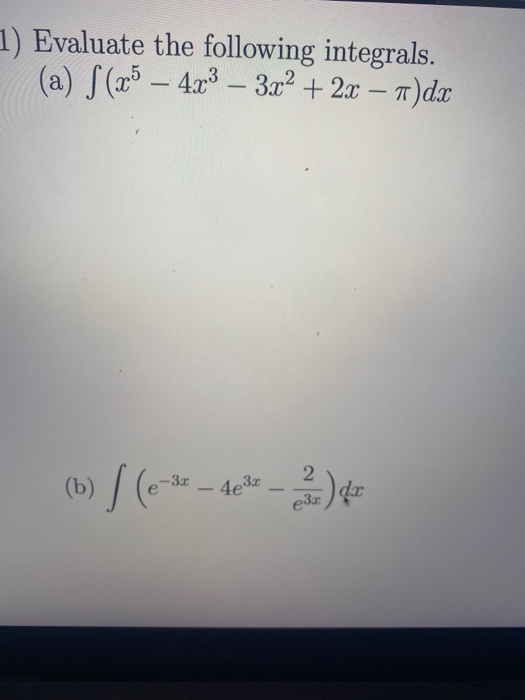 1) Evaluate the following integrals.
(a) ∫(x⁵ – 4x³ – 3x² + 2x – π)dx
(b) ∫ (e⁻³ˣ – 4e³ˣ – 2/e³ˣ) dx